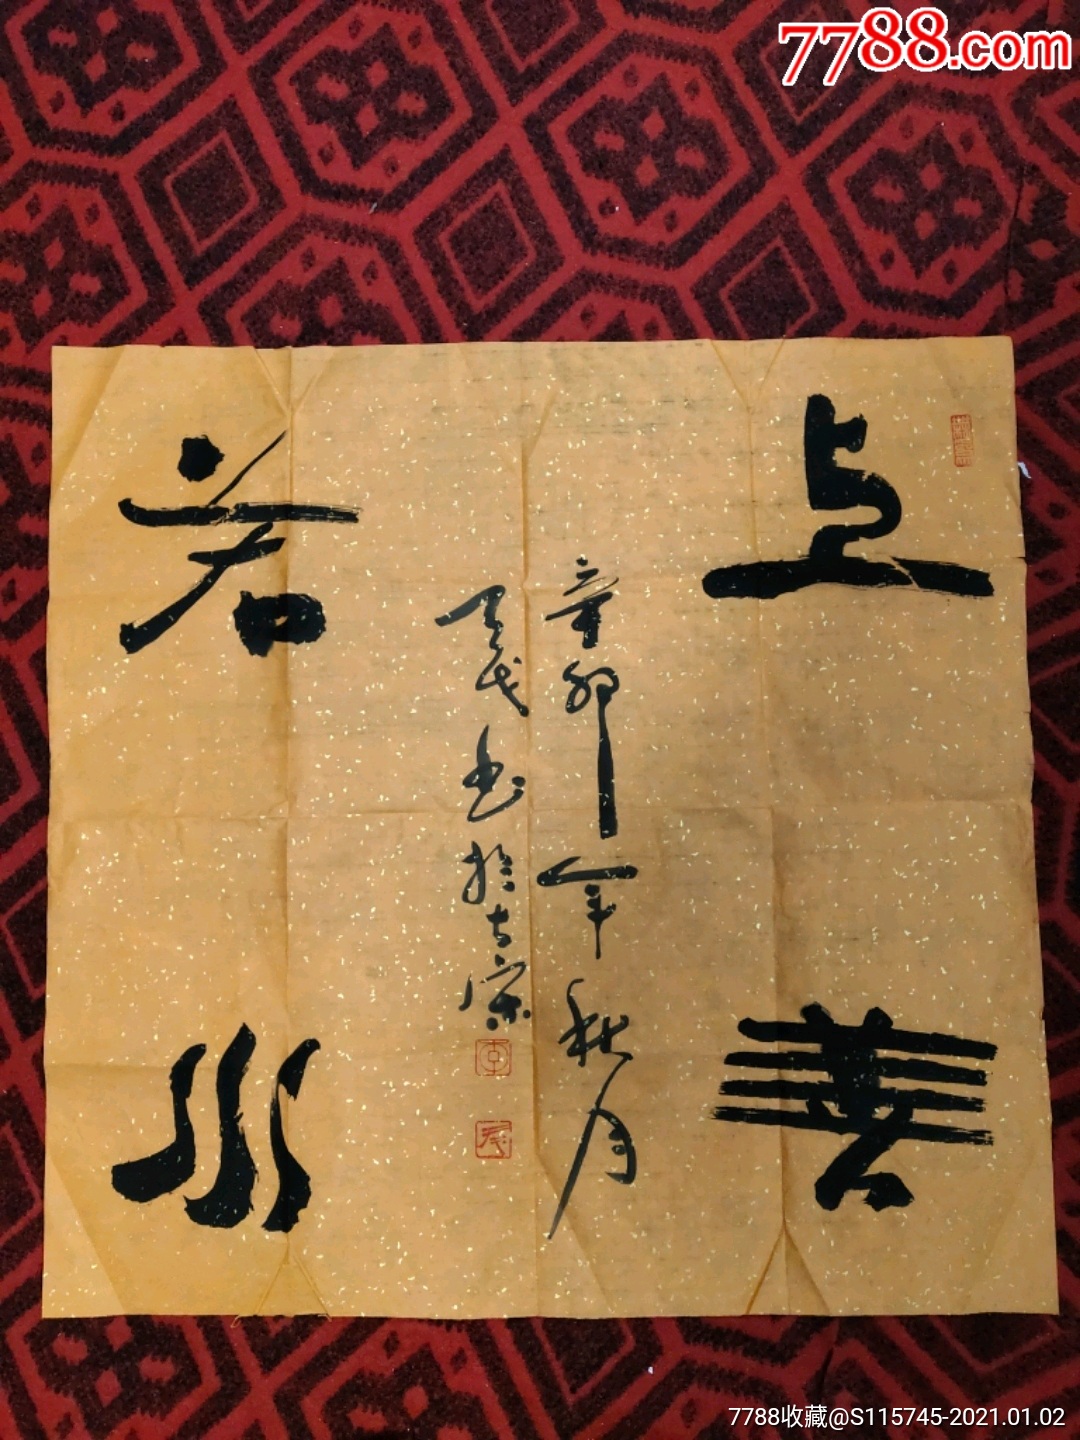 7788.com
上善
若水
辛卯年秋月
书於古宋
7788收藏@S115745-2021.01.02